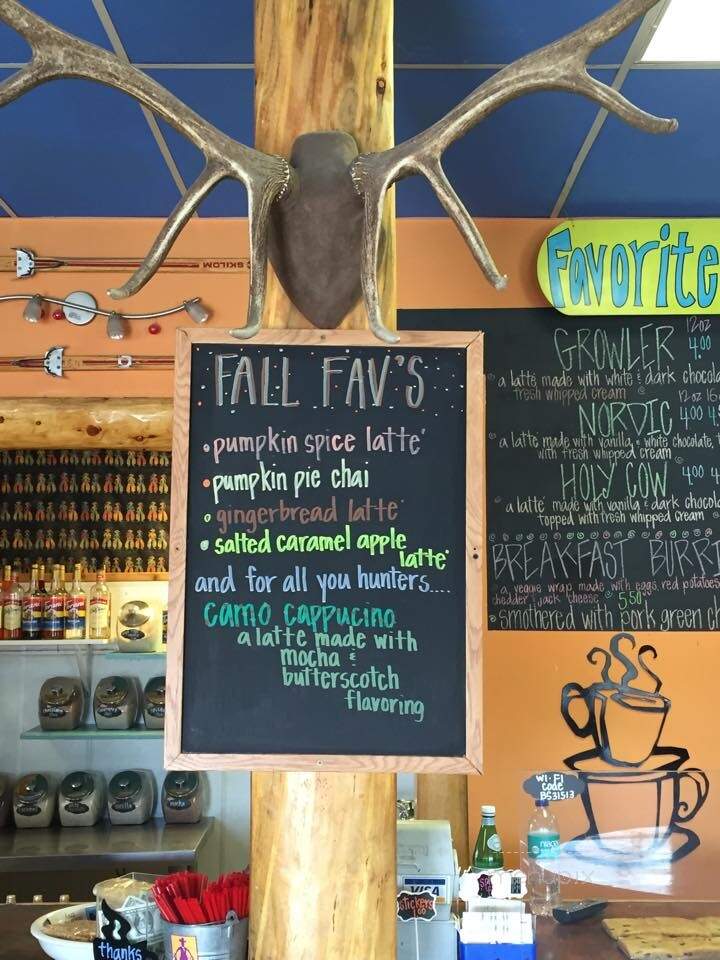 SKILOM
FALL FAV'S
pumpkin spice latte
pumpkin pie chai
gingerbread latte
salted caramel apple
latte
and for all you hunters....
camo cappucino
a latte made with
mocha &
butterscotch
flavoring
Favorite
GROWLER 12oz 4.00
a latte made with white & dark chocola
fresh whipped cream
12oz 16
NORDIC 4.00 4
a latte made with vanilla & white chocolate,
with fresh whipped cream
HOLY COW 4.00 4
a latte made with vanilla & dark chocola
topped with fresh whipped cream
BREAKFAST BURRI
a veggie wrap made with eggs, red potatoes
chedder & jack cheese 5.50
smothered with pork green ch
WI-FI
code
BS31513
VISA
stickers
thanks